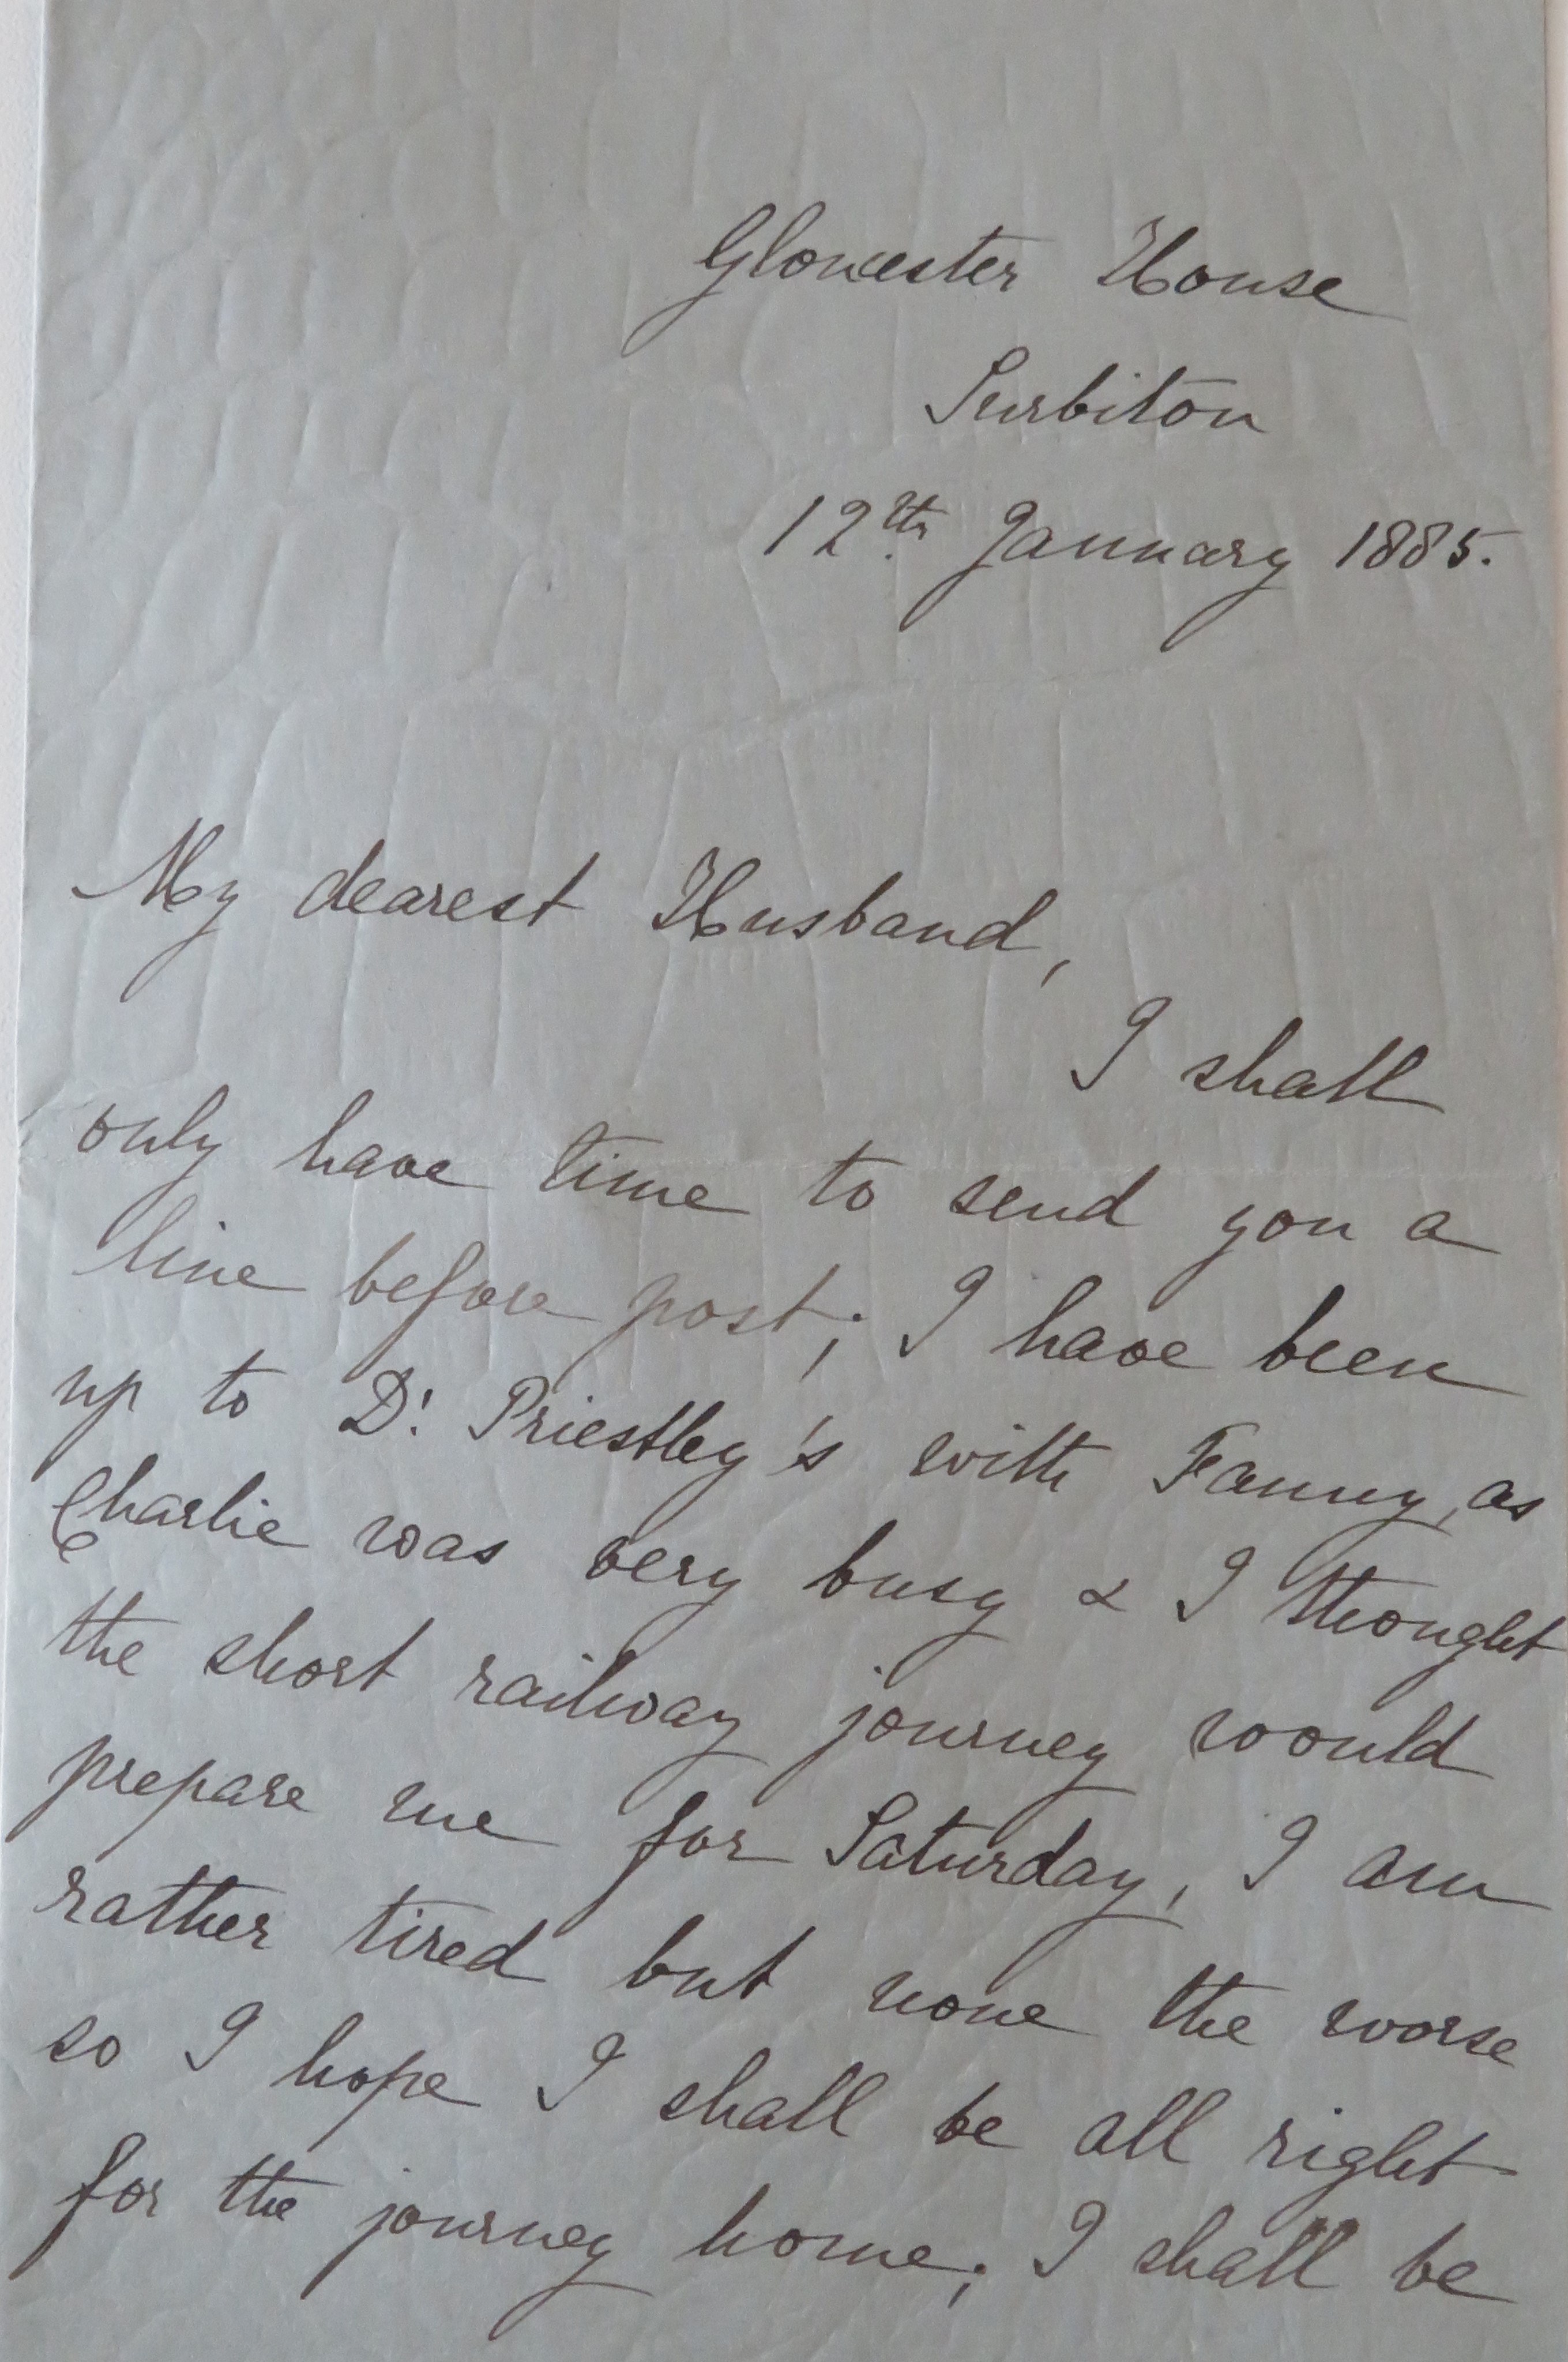 Gloucester House
Surbiton
12th January 1885.
My dearest Husband,
I shall
only have time to send you a
line before post; I have been
up to Dr. Priestley's with Fanny, as
Charlie was very busy & I thought
the short railway journey would
prepare me for Saturday, I am
rather tired but none the worse
so I hope I shall be all right
for the journey home; I shall be